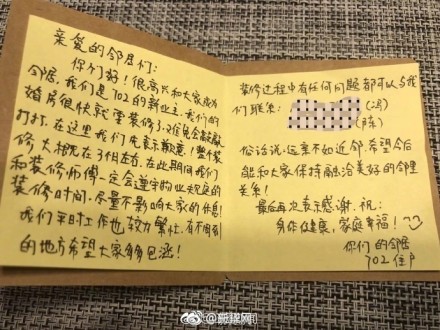 亲爱的邻居们：
你们好！很高兴和大家成为
邻居，我们是702的新业主，我们的
婚房很快就要装修了，难免会敲敲
打打，在这里我们先表示歉意！整体装
修大概在3个月左右，在此期间我们
和装修师傅一定会遵守物业规定的
装修时间，尽量不影响大家的休息！
我们平时工作也较为繁忙，有不周到
的地方希望大家多多包涵！
装修过程中有任何问题都可以与我
们联系：
(冯)
(陈)
俗话说，远亲不如近邻，希望今后
能和大家保持融洽美好的邻里
关系！
最后再次表示感谢，祝：
身体健康，家庭幸福！
你们的邻居
702住户